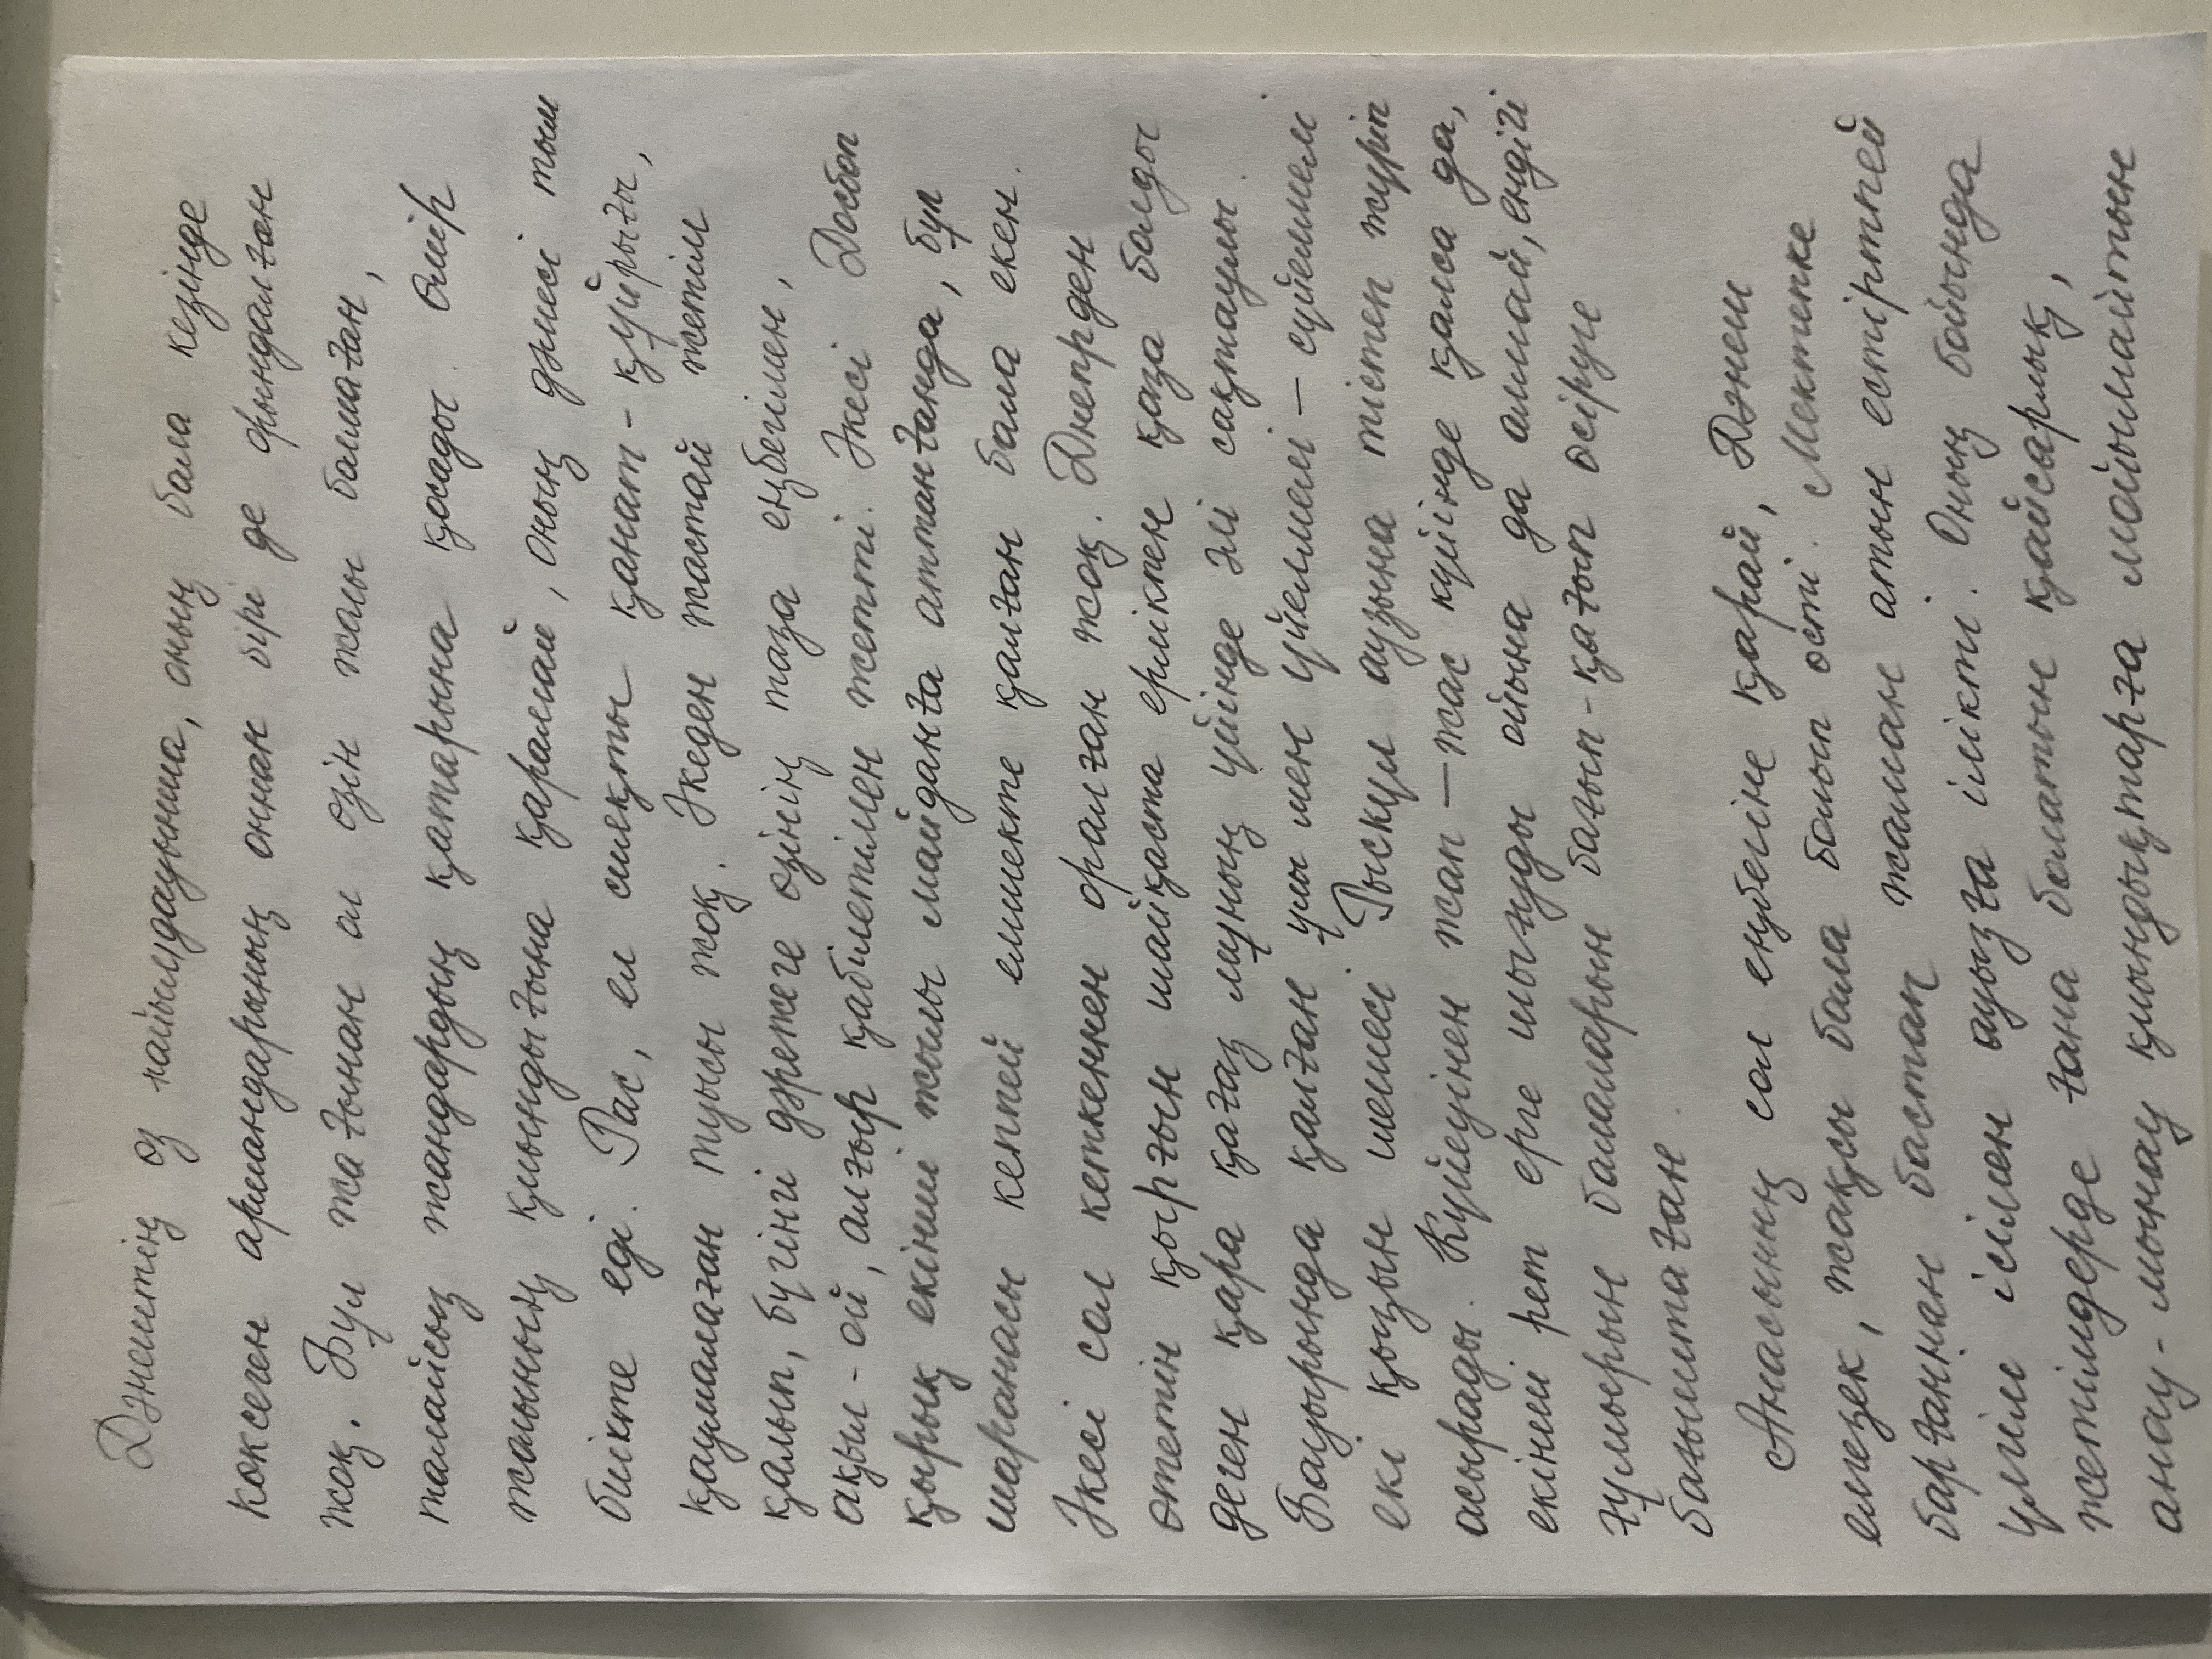 Дәнештің өз пайымдауынша, оның бала кезінде
көксеген армандарының оннан бірі де орындалған
жоқ. Бұл жағынан ол өзін жолы болмаған,
талайсыз жандардың қатарына қосады. Өмір
жолының қиындығына қарамай, оның дәмесі тым
биікте еді. Рас, ел сияқты қанат - құйрығы,
қаумалаған туысы жоқ. Әкеден жастай жетім
қалып, бүгінгі дәрежеге өзінің таза еңбегімен,
ақыл - ой, алғыр қабілетімен жетті. Әкесі Досбол
қырық екінші жылы майданға аттанғанда, бұл
шаранасы кеппей емшекте қалған бала екен.
Әкесі сол кеткеннен оралған жоқ. Днепрден
өтетін қырғын шайқаста ерлікпен қаза болды
деген қара қағаз мұның үйінде әлі сақтаулы.
Бауырында қалған ұлы мен үйелмелі — сүйелмелі
екі қызын шешесі Рыскүл аузына тістеп жүріп
асырады. Күйеуінен жап — жас күйінде қалса да,
екінші рет ерге шығуды ойына да алмай, ендігі
ғұмырын балаларын бағып - қағып өсіруге
бағыштаған.
Анасының сол еңбегіне қарай, Дәнеш
елгезек, жақсы бала болып өсті. Мектепке
барғаннан бастап жаман атын естіртпей
үлгілі ісімен ауызға ілікті. Оның бойында
жетімдерде ғана болатын қайсарлық,
анау - мынау қиындықтарға мойымайтын